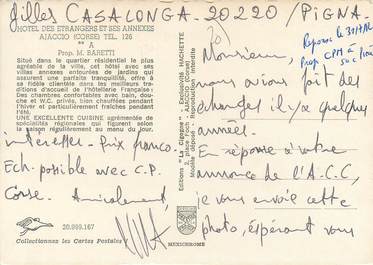 Gilles CASALONGA - 20220 / PIGNA
HOTEL DES ETRANGERS ET SES ANNEXES
AJACCIO (CORSE) TEL. 126
** A
Prop. M. BARETTI
Situé dans le quartier résidentiel le plus
agréable de la ville, cet hôtel avec ses
villas annexes entourées de jardins qui
assurent une parfaite tranquillité, offre à
sa fidèle clientèle dans les meilleurs
traditions d'accueil de l'hôtellerie Française:
Des chambres confortables avec bain, douche
et W.C. privés, bien chauffées pendant
l'hiver et particulièrement fraîches pendant
l'été,
UNE EXCELLENTE CUISINE agrémentée de
spécialités régionales qui figurent selon
la saison régulièrement au menu du jour.
intéresser - Prix franco
Ech. possible avec C.P.
Corse. Amicalement,
20.999.167
Collectionnez les Cartes Postales
MEXICHROME
Editions "La Cigogne" - Exclusivité HACHETTE
Modèle déposé - Reproduction interdite
CPM à
50 c
Monsieur,
nous avions fait des
échanges il y a quelques
années.
En réponse à votre
annonce de l'A.C.C,
je vous envoie cette
photo, espérant vous